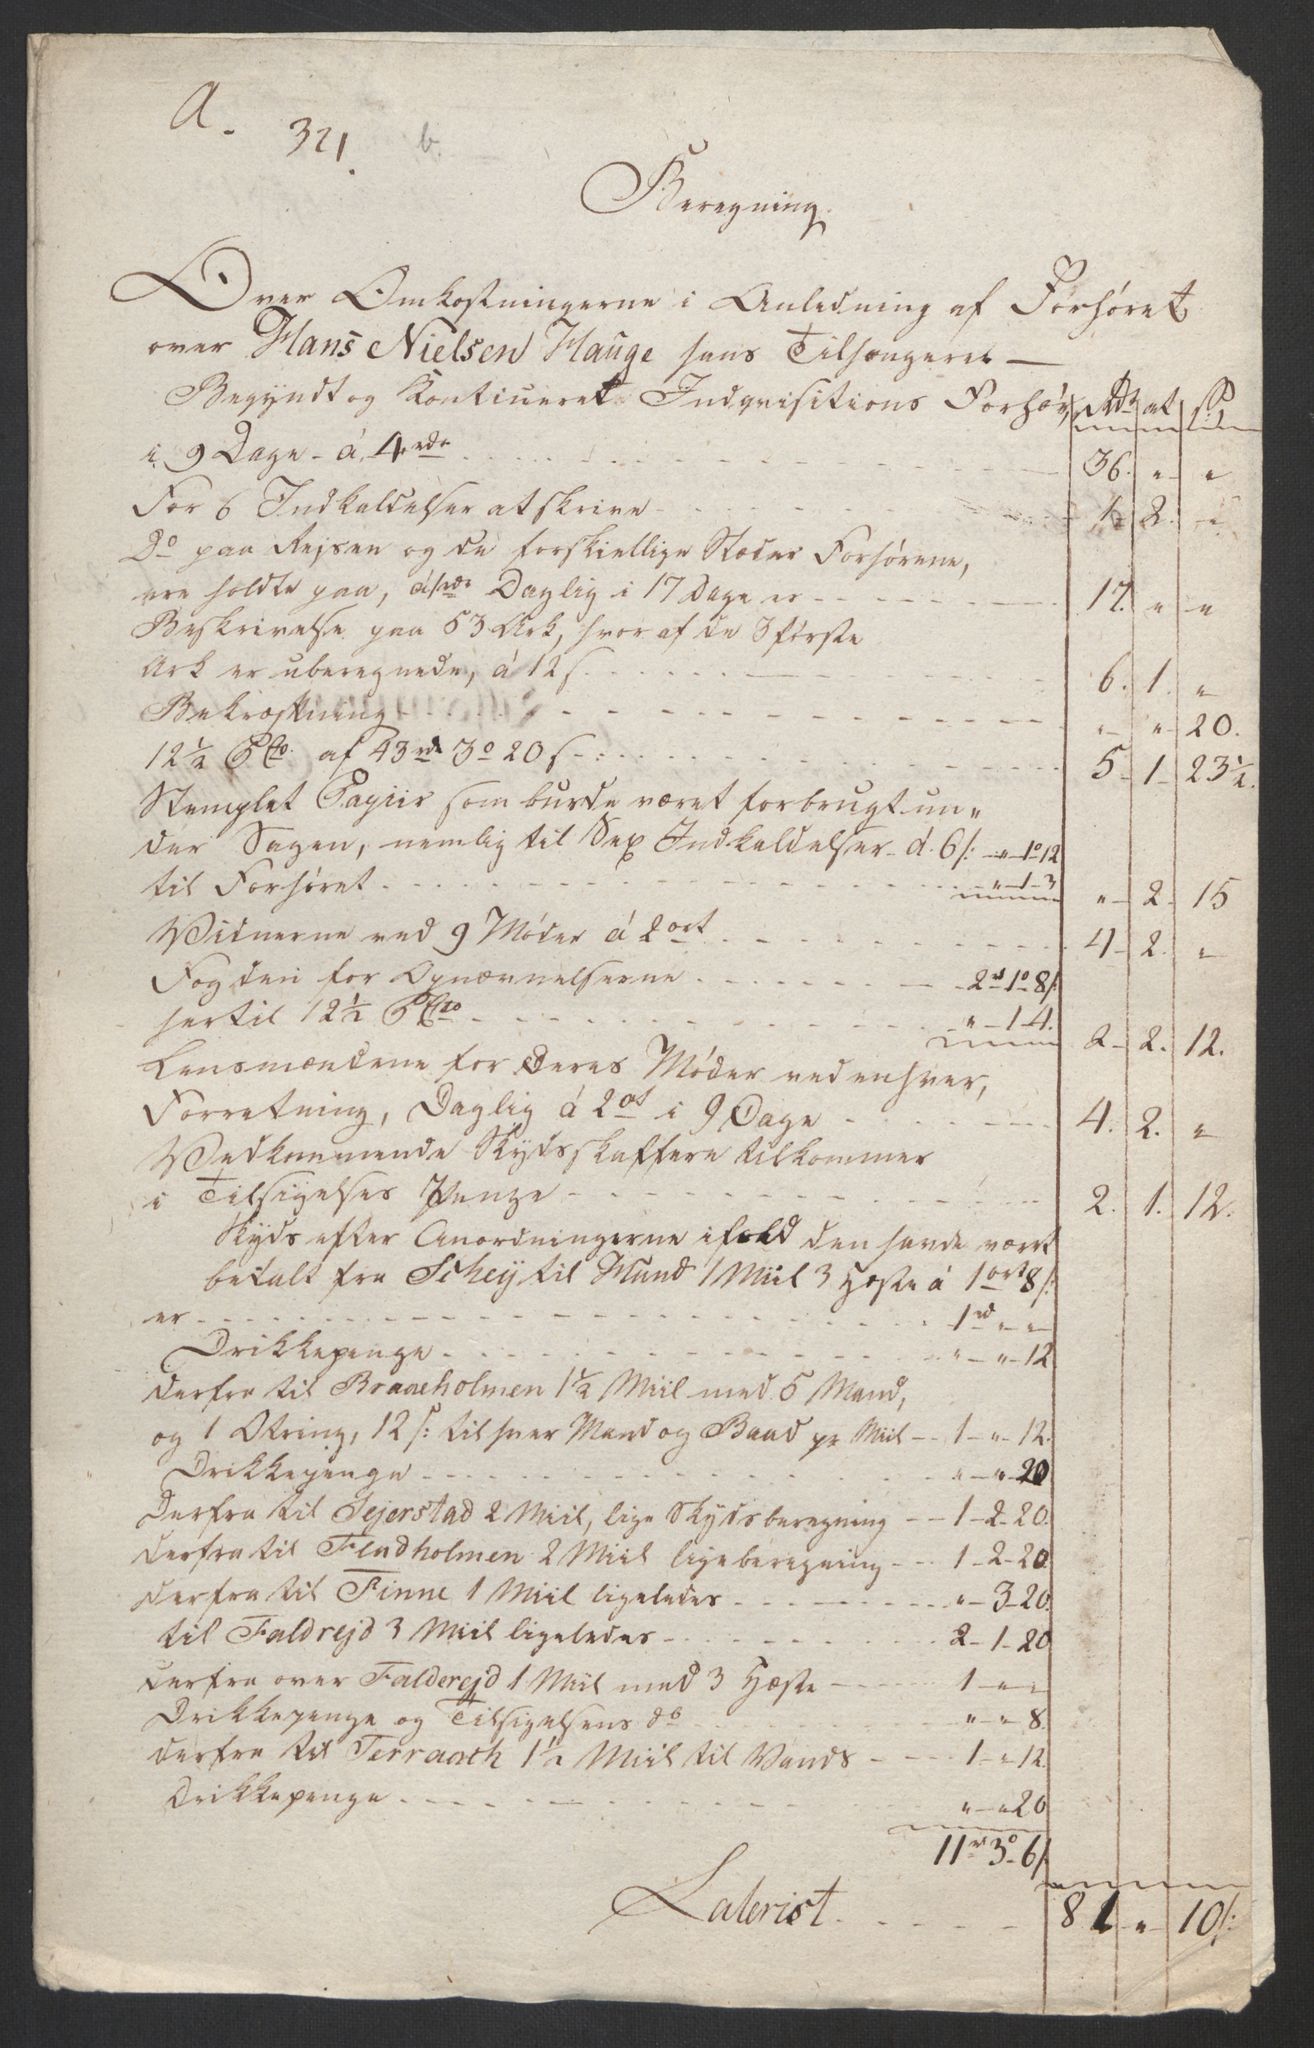 A.
321. b.
Beregning.
Over Omkostningerne i Anledning af Forhøret
over Hans Nielsen Hauge hans Tilhængere —
Begyndt og Kontinueret Indqvisitions Forhør, Rdr ort s
i 9 Dage - á 4 rdr 36. " "
For 6 Indkaldelser at skrive 1. 2. "
Do paa Rejsen og de forskiellige Stæder Forhørene,
ere holdte paa, á 1 rdr Daglig i 17 Dage er 17. " "
Beskrivelse paa 53 Ark, hvoraf de 3 første
Ark er uberegnede, á 12 s. 6. 1. "
Bekræftning " " 20.
12½ PCto. af 43 rd 3 o 20 s 5 - 1 - 23½.
Stemplet Papiir som burde været forbrugt un„
der Sagen, nemlig til Sex Indkaldelser á 6 s: " 1 o 12
til Forhøret " - 1 - 3 " 2. 15
Vidnerne ved 9 Møder á 2 ort 4 - 2. "
Fogden for Opnævnelserne 2 rd 1 o 8 s:
hertil 12½ PCto " - 1 4. 2 - 2. 12.
Lensmændene for deres Møder ved enhver,
Forretning, Daglig á 2 ort i 9 Dage 4. 2. "
Vedkommende Skydsskaffere tilkommer
i Tilsigelses Penge 2. 1. 12.
Skyds efter Anordningerne ifald den havde været
betalt fra Scheij til Mund 1 Miil 3 Heste á 1 ort 8 s:
er 1 rd " "
Drikkepenge " - " - 12
derfra til Braaeholmen 1½ Miil med 5 Mand,
og 1 Otring, 12 s: til hver Mand og Baad pr Miil 1 - " - 12.
Drikkepenge " - " 20
Derfra til Sejerstad 2 Miil, lige Skydsberegning 1 - 2 - 20.
derfra til Fladholmen 2 Miil lige beregning 1 - 2 - 20
derfra til Finne 1 Miil ligeledes " - 3 - 20.
til Faldrejd 3 Miil ligeledes 2 - 1 - 20
derfra over Falderejd 1 Miil med 3 Heste 1 - " - "
Drikkepenge og Tilsigelsens do " " 8.
derfra til Terraack 1½ Miil til Vands 1 - " 12.
Drikkepenge " - " 20
11 rd 3 o 6 s:
Laterist 81 " 10 s: